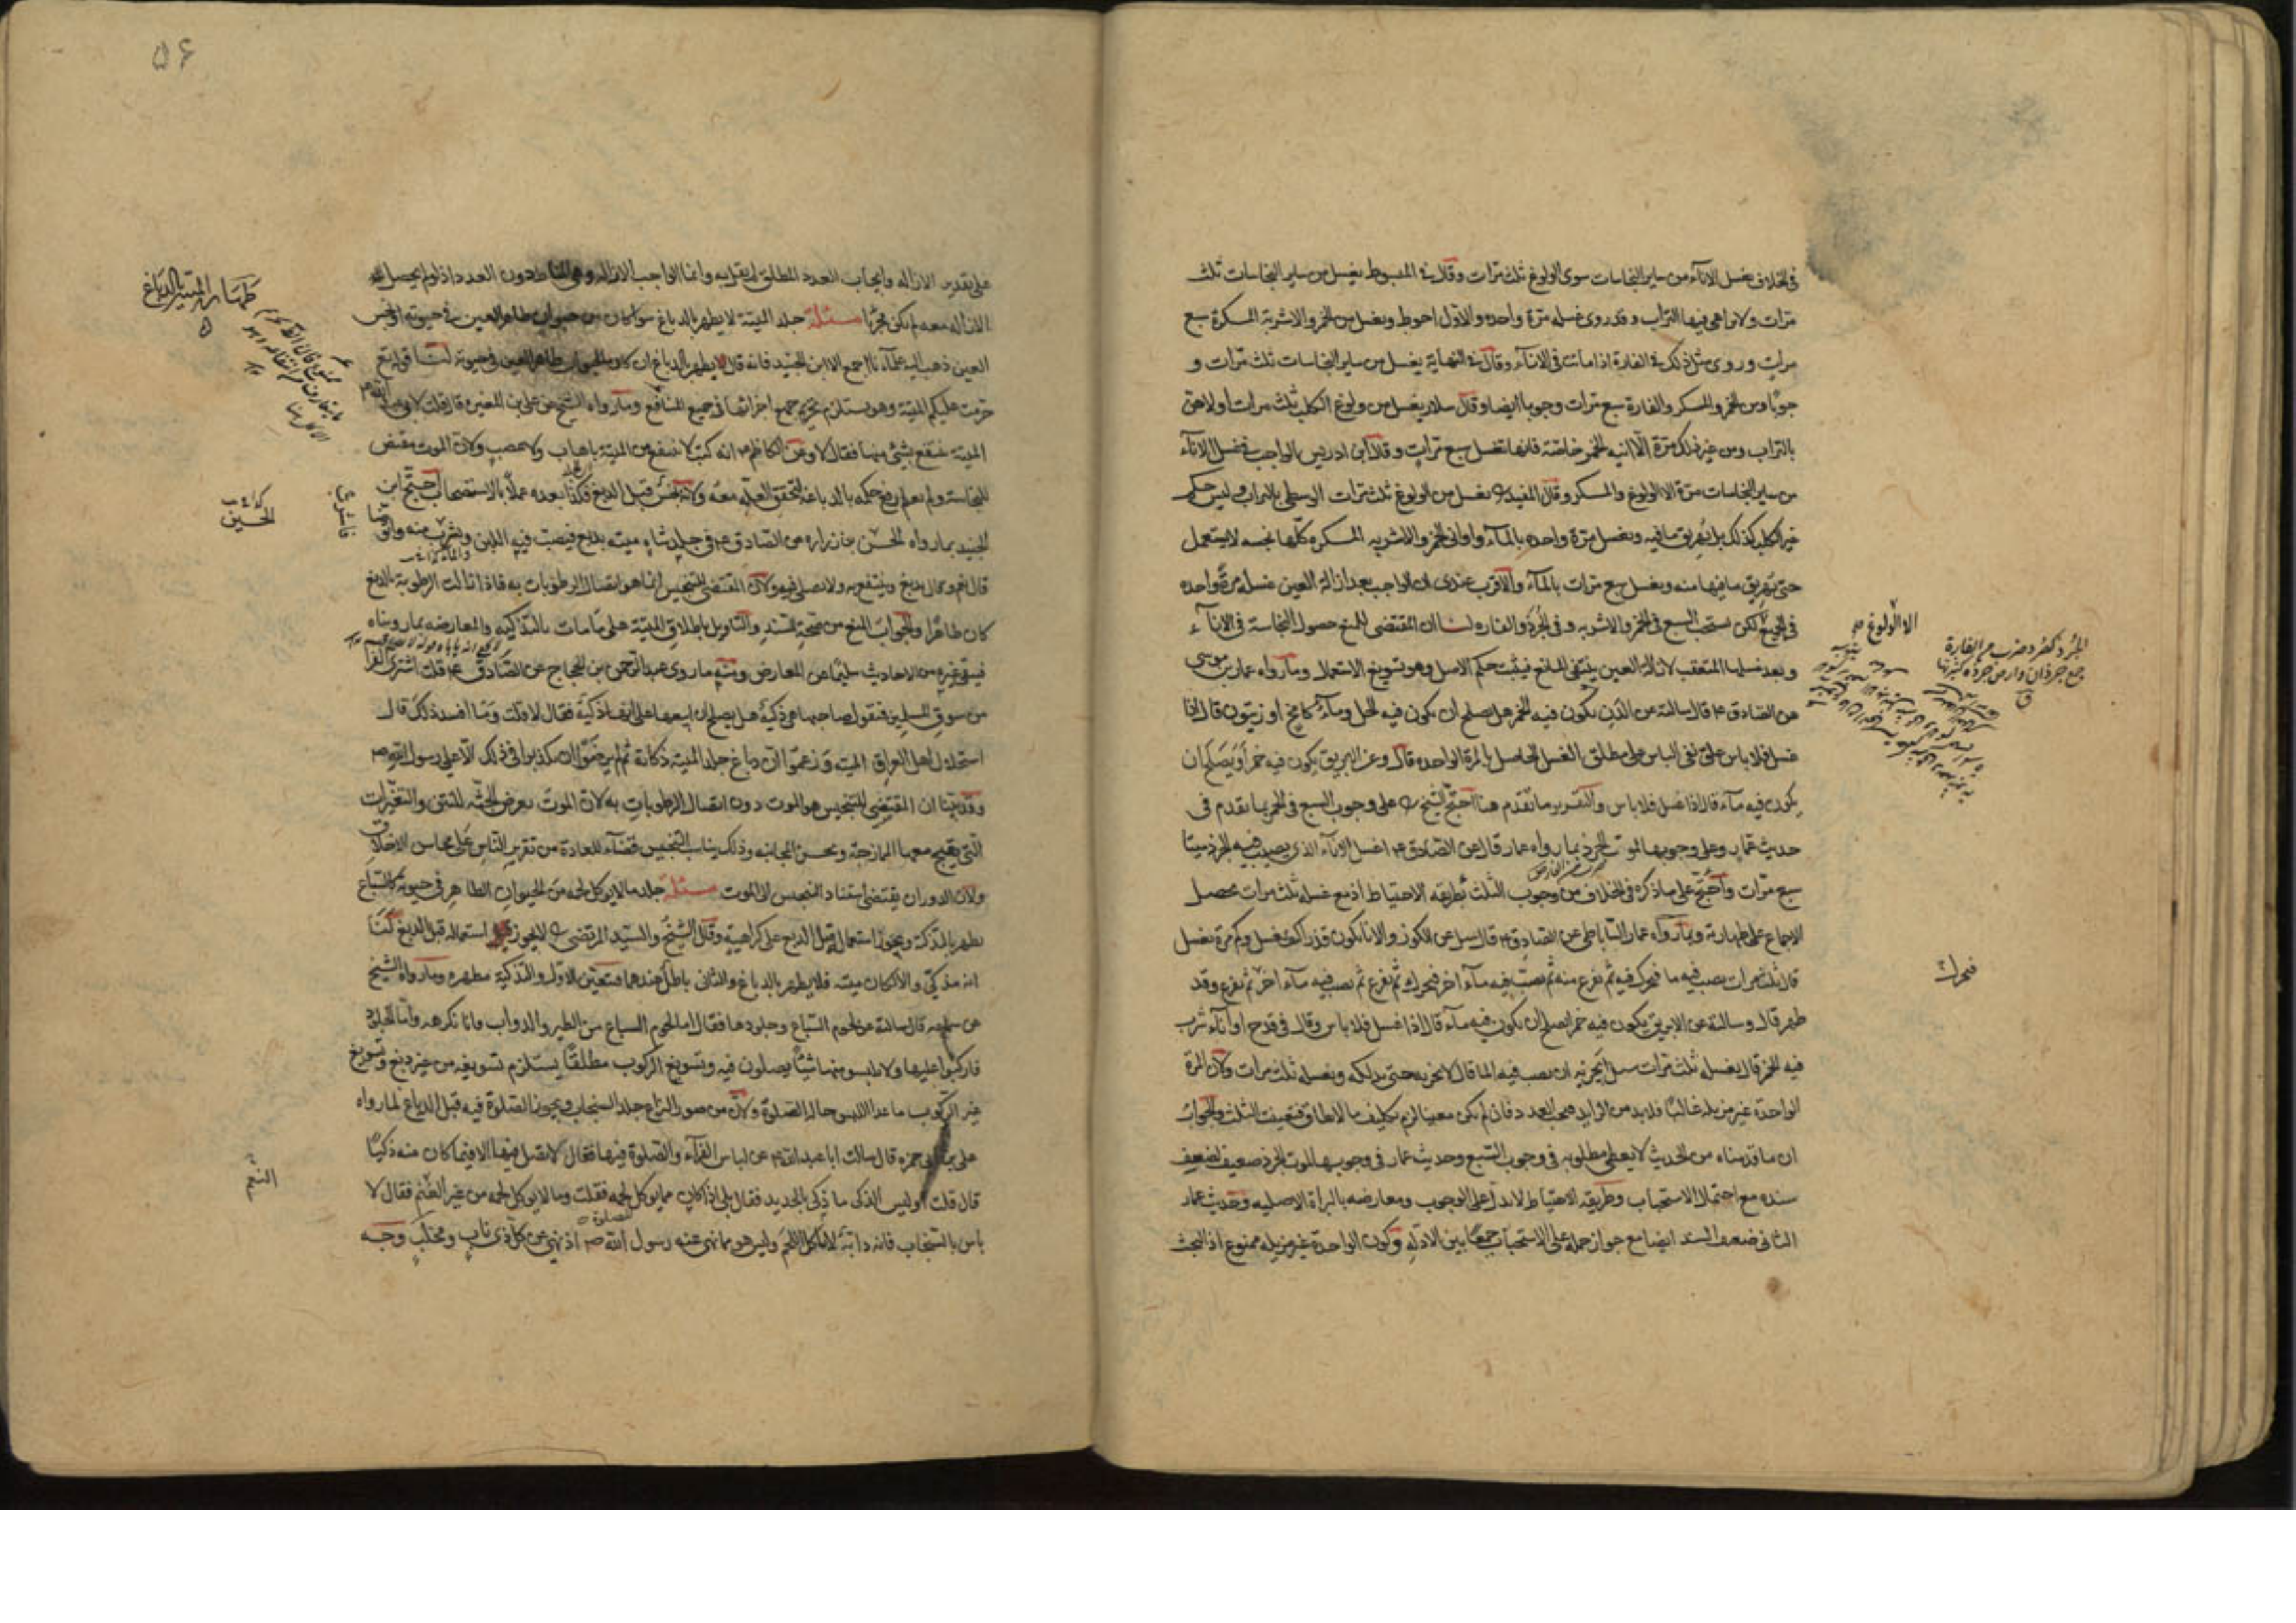 في الخلاف يغسل الاناء من سائر النجاسات سوى الولوغ ثلث مرات وقال في المبسوط يغسل من سائر النجاسات ثلث
مرات ولا يراعى فيها التراب وقد روى غسله مرة واحدة والاول احوط ويغسل من الخمر والاشربة المسكرة سبع
مرات وروى مثل ذلك في الفارة اذا ماتت في الاناء وقال في النهاية يغسل من سائر النجاسات ثلث مرات و
جوبا ومن الخمر والمسكر والفارة سبع مرات وجوبا ايضا وقال سلار يغسل من ولوغ الكلب ثلث مرات اولاهن
بالتراب ومن غير ذلك مرة الا انية الخمر خاصة فانها تغسل سبع مرات وقال ابن ادريس الواجب غسل الاناء
من سائر النجاسات مرة الا الولوغ والمسكر وقال المفيد ره يغسل من الولوغ ثلث مرات الوسطى بالتراب وليس حكم
غير الكلب كذلك بل يهريق ما فيه ويغسل مرة واحدة بالماء واواني الخمر والاشربه المسكره كلها نجسه لا يستعمل
حتى يهريق ما فيها منه ويغسل سبع مرات بالماء والاقرب عندى ان الواجب بعد ازالة العين غسله مرة واحده
في الجميع لكن يستحب السبع في الخمر والاشربه وفي الجرذ والفاره لنا ان المقتضى للمنع حصول النجاسة في الاناء
وبعد غسلها المتعقب لازالة العين ينتفى المانع فيثبت حكم الاصل وهو تسويغ الاستعمال وما رواه عمار بن موسى
عن الصادق ع قال سالته عن الدن يكون فيه الخمر هل يصلح ان يكون فيه الخل وماء كامخ او زيتون قال اذا
غسل فلا باس علق نفى الباس على مطلق الغسل الحاصل بالمرة الواحده قال وعن الابريق يكون فيه خمر أيصلح ان
يكون فيه ماء قال اذا غسل فلا باس والتقرير ما تقدم هنا احتج الشيخ ره على وجوب السبع في الخمر بما تقدم في
حديث عمار وعلى وجوبها لموت الجرذ بما رواه عمار قال عن الصادق ع اغسل الاناء الذى يصيب فيه الجرذ ميتا
سبع مرات واحتج على ما ذكره في الخلاف من وجوب الثلث بطريقه الاحتياط اذ مع غسله ثلث مرات يحصل
الاجماع على طهارته وبما رواه عمار الساباطى عن الصادق ع قال سئل عن الكوز والاناء يكون قذرا كيف يغسل وكم مرة يغسل
قال ثلث مرات يصب فيه ما فيحرك فيه ثم يفرغ منه ثم يصب فيه ماء اخر فيحرك ثم يفرغ ثم يصب فيه ماء اخر ثم يفرغ وقد
طهر قال وسالته عن الابريق يكون فيه خمر ايصلح ان يكون فيه ماء قال اذا غسل فلا باس وقال في قدح او اناء شرب
فيه الخمر قال يغسله ثلث مرات سئل ايجزيه ان يصب فيه الما قال لا يجزيه حتى يدلكه ويغسله ثلث مرات ولان المرة
الواحدة غير مزيله غالبا فلا بد من الزايد فيجب العدد فان لم يكن معينا لزم تكليف ما لا يطاق فتعينت الثلث والجواب
ان ما قدمناه من الحديث لا يعطى مطلوبه في وجوب السبع وحديث عمار في وجوبها لموت الجرذ ضعيف لضعف
سنده مع احتمال الاستحباب وطريقه الاحتياط لا تدل على الوجوب ومعارضه بالبراة الاصليه وحديث عمار
الثانى ضعيف السند ايضا مع جواز حمله على الاستحباب جمعا بين الادله وكون الواحدة غير مزيله ممنوع اذ البحث
الا الولوغ
الجرذ كصرد ضرب من الفارة
جمع جرذان وارض جرذه كثيرتها
ق
فيحرك
۵۶
على تقدير الازاله وايجاب العدد المطلق لم يقل به وانما الواجب الازاله وهى المناط دون العدد اذ لو لم يحصل
الازاله معه لم يكن مجزيا مسئلة جلد الميتة لا يطهر بالدباغ سواء كان من حيوان طاهر العين في حيوته او نجس
العين ذهب اليه علماءنا اجمع الا ابن الجنيد فانه قال يطهر بالدباغ ان كان الحيوان طاهر العين في حيوته لنا قوله تع
حرمت عليكم الميتة وهو يستلزم تحريم جميع اجزائها في جميع المنافع وما رواه الشيخ عن على بن المغيرة قال قلت لابى عبد الله ع
الميتة ينتفع بشئ منها فقال لا وعن الكاظم ع انه كتب لا ينتفع من الميتة باهاب ولا عصب ولان الموت مقتض
للنجاسة ولم يعلم رفع حكمه بالدباغة لتحقق العلة معه ولانه نجس قبل الدبغ فكذا بعده عملا بالاستصحاب احتج ابن
الجنيد بما رواه الحسن بن زراره عن الصادق ع في جلد شاه ميته يدبغ فيصب فيه اللبن ويشرب منه واتوضا
قال نعم وقال يدبغ وينتفع به ولا يصلى فيه ولان المقتضى للتنجيس انما هو اتصال الرطوبات به فاذا زالت الرطوبة بالدبغ
كان طاهرا والجواب المنع من صحة السند والتاويل باطلاق الميتة على ما مات بالتذكيه والمعارضه بما رويناه
فيبقى غيره من الاحاديث سليما عن المعارض ومنه ما روى عبد الرحمن بن الحجاج عن الصادق ع قلت اشترى الفرا
من سوق المسلمين فيقول صاحبها هى ذكية هل يصلح ان ابيعها على انها ذكية فقال لا قلت وما افسد ذلك قال
استحلال اهل العراق الميته وزعموا ان دباغ جلد الميته ذكاته ثم لم يرضوا ان يكذبوا في ذلك الا على رسول الله ص
وقد بينا ان المقتضى للتنجيس هو الموت دون اتصال الرطوبات به لان الموت يعرض الجثه للنتن والتغيرات
التى يقبح معها الممازجة ويحسن المجانبه وذلك يناسب التنجيس قضاء للعادة من تقرير الناس على محاسن الاخلاق
ولان الدوران يقتضى استناد التنجيس الى الموت مسئلة جلد ما لا يوكل لحمه من الحيوان الطاهر في حيوته كالسباع
يطهر بالتذكية ويجوز استعماله قبل الدبغ على كراهية وقال الشيخ والسيد المرتضى ره لا يجوز استعماله قبل الدبغ لنا
انه مذكى والا لكان ميته فلا يطهر بالدباغ والثانى باطل عندهما فتعين الاول والتذكية مطهره وما رواه الشيخ
عن سماعه قال سالته عن لحوم السباع وجلودها فقال اما لحوم السباع من الطير والدواب فانا نكرهه واما الجلود
فاركبوا عليها ولا تلبسو منها شيئا يصلون فيه وتسويغ الركوب مطلقا يستلزم تسويغه من غير دبغ وتسويغ
غير الركوب ما عدا اللبس حالة الصلوة ولان من صور النزاع جلد السنجاب ويجوز الصلوة فيه قبل الدباغ لما رواه
على بن ابى حمزه قال سالت ابا عبد الله ع عن لباس الفراء والصلوة فيها فقال لا تصل فيها الا فيما كان منه ذكيا
قال قلت اوليس الذكى ما ذكى بالحديد فقال بلى اذا كان مما يوكل لحمه فقلت وما لا يوكل لحمه من غير الغنم فقال لا
باس بالسنجاب فانه دابة لا تاكل اللحم وليس هو مما نهى عنه رسول الله ص اذ نهى عن كل ذى ناب ومخلب وجه
طهارة الميتة بالدباغ
الحسين
النعم